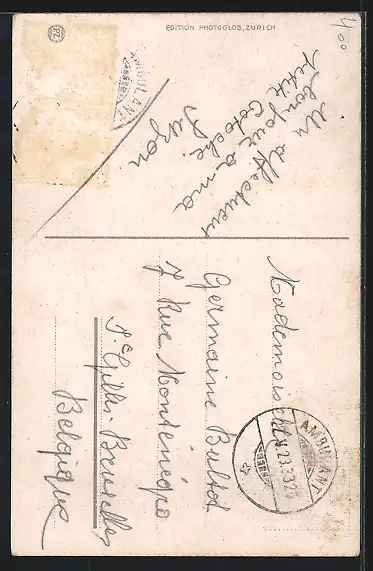 EDITION PHOTOGLOB, ZÜRICH
PZ
4.00
AMBULANT
Un affectueux
bonjour à ma
petite
Suzon
Mademoiselle
Germaine
7 Rue Monténégro
St Gilles-Bruxelles
Belgique
AMBULANT